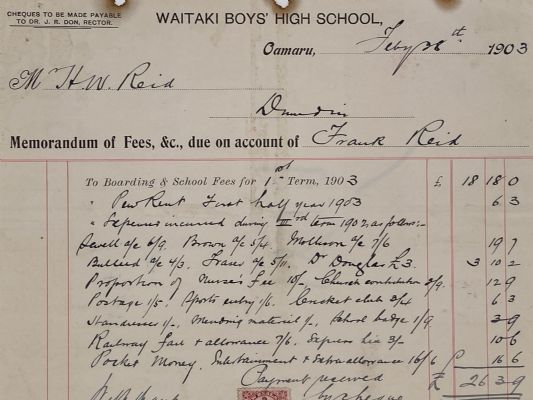 CHEQUES TO BE MADE PAYABLE
TO DR. J. R. DON, RECTOR.
WAITAKI BOYS' HIGH SCHOOL,
Oamaru, Feby 26th 1903
Mr H.W. Reid
Dunedin
Memorandum of Fees, &c., due on account of Frank Reid
To Boarding & School Fees for 1st Term, 1903 £ 18 18 0
" Pew Rent First half year 1903 6 3
" Expenses incurred during IIIrd term 1902 as follows:-
Jewell a/c 6/9. Brown a/c 5/4. Mollison a/c 7/6 19 7
Bullied a/c 4/3. Fraser a/c 5/11. Dr Douglas £3. 3 10 2
Proportion of Nurse's Fee 10/- Church contribution 2/9. 12 9
Postage 1/5. Sports entry 1/6. Cricket club 3/4 6 3
1/-. Mending material 1/-. School badge 1/9. 3 9
Railway fare & allowance 7/6. Express hire 3/- 10 6
Pocket Money, Entertainment & Extra allowance 16/6 16 6
Payment received £ 26 3 9
by cheque